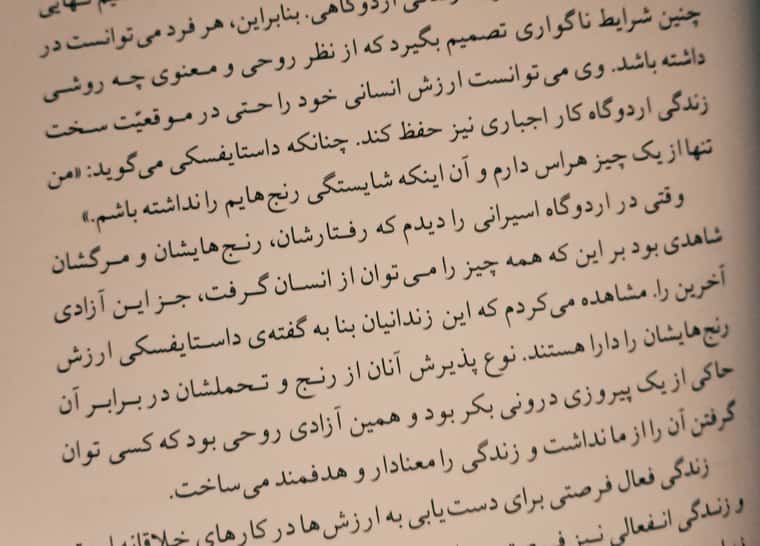 اردوگاهی. بنابراین، هر فرد می‌توانست در
چنین شرایط ناگواری تصمیم بگیرد که از نظر روحی و معنوی چه روشی
داشته باشد. وی می‌توانست ارزش انسانی خود را حتی در موقعیّت سخت
زندگی اردوگاه کار اجباری نیز حفظ کند. چنانکه داستایفسکی می‌گوید: «من
تنها از یک چیز هراس دارم و آن اینکه شایستگی رنج‌هایم را نداشته باشم.»
وقتی در اردوگاه اسیرانی را دیدم که رفتارشان، رنج‌هایشان و مرگشان
شاهدی بود بر این که همه چیز را می‌توان از انسان گرفت، جز این آزادی
آخرین را. مشاهده می‌کردم که این زندانیان بنا به گفته‌ی داستایفسکی ارزش
رنج‌هایشان را دارا هستند. نوع پذیرش آنان از رنج و تحملشان در برابر آن
حاکی از یک پیروزی درونی بکر بود و همین آزادی روحی بود که کسی توان
گرفتن آن را از ما نداشت و زندگی را معنادار و هدفمند می‌ساخت.
زندگی فعال فرصتی برای دست‌یابی به ارزش‌ها در کارهای خلاقانه
و زندگی انفعالی نیز